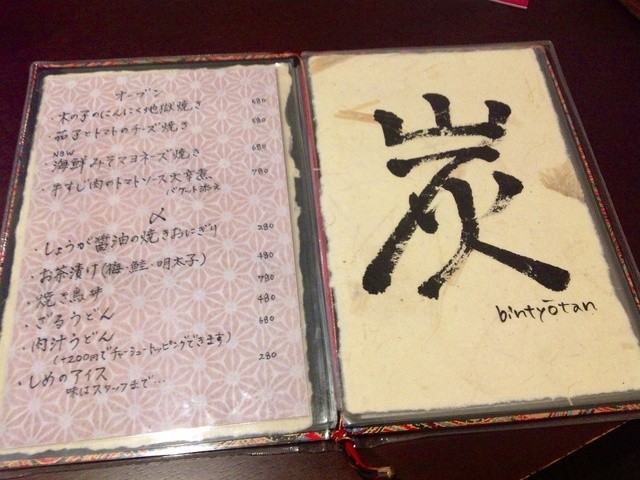 オーブン
・木の子のにんにく地獄焼き 680
・茄子とトマトのチーズ焼き 680
NEW
・海鮮みそマヨネーズ焼き 680
・牛すじ肉のトマトソース大辛煮 780
バケット添え
〆
・しょうが醤油の焼きおにぎり 280
・お茶漬け(梅・鮭・明太子) 480
・焼き鳥丼 780
・ざるうどん 480
・肉汁うどん 680
(+200円でチャーシュートッピングできます)
・しめのアイス 280
味はスタッフまで…
炭
bintyōtan